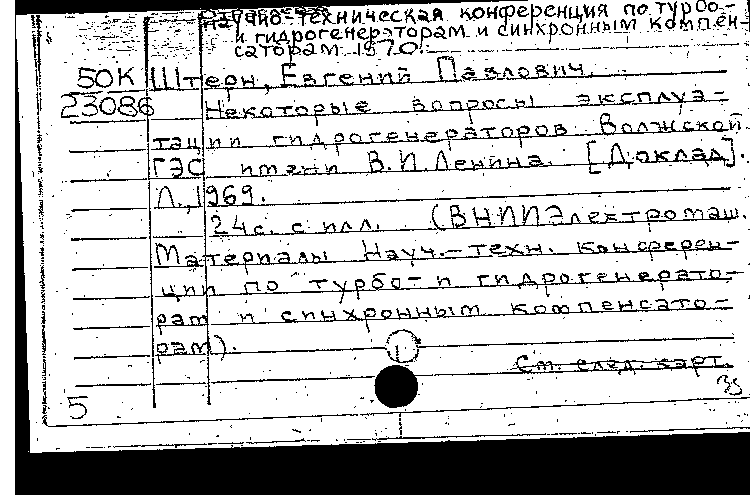 Научно-техническая конференция по турбо-
и гидрогенераторам и синхронным компен-
саторам. 1970.
50К Штерн, Евгений Павлович.
23086 Некоторые вопросы эксплуа-
тации гидрогенераторов Волжской
ГЭС имени В.И.Ленина. [Доклад].
Л., 1969.
24с. с илл. (ВНИИЭлектромаш.
Материалы Науч.-техн. конферен-
ции по турбо- и гидрогенерато-
рам и синхронным компенсато-
рам).
См. след. карт.
5